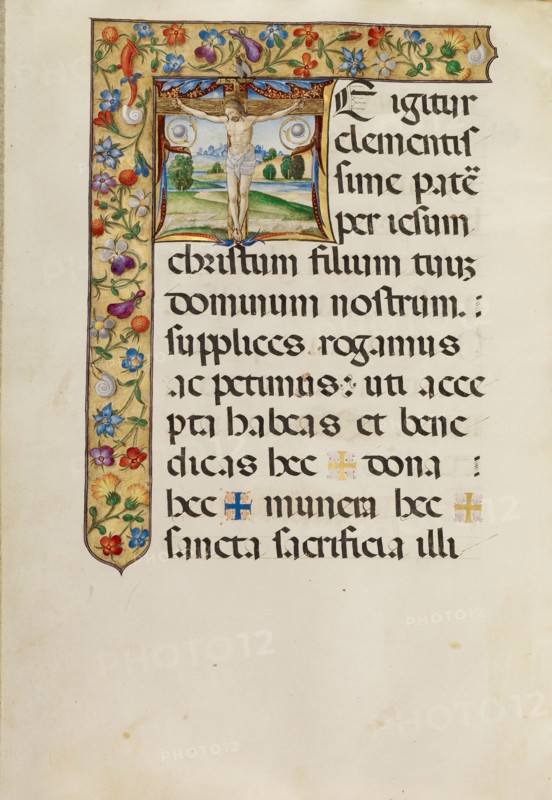 E igitur
clementis
sime patē
per iesum
christum filium tuuʒ
dominum nostrum. :
supplices rogamus
ac petimus : uti acce
pta habeas et bene
dicas hec ✠ dona :
hec ✠ munera hec ✠
sancta sacrificia illi
PHOTO12
PHOTO12
PHOTO12
PHOTO12